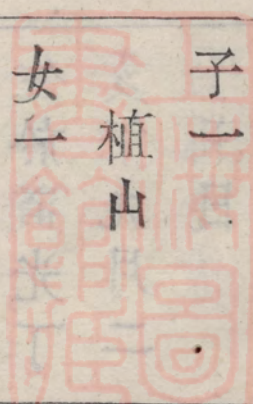 子一
植山
女一